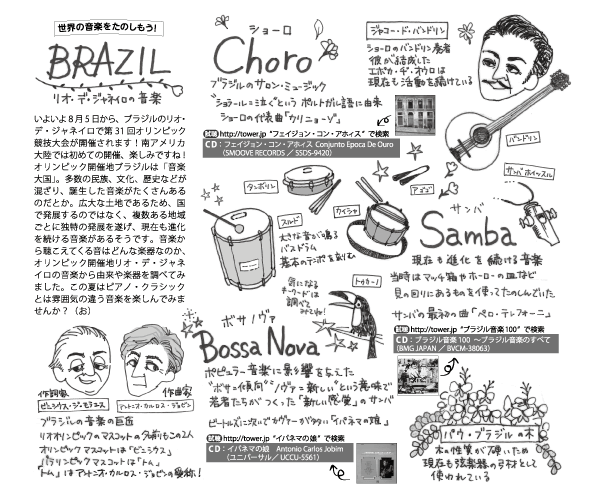 世界の音楽をたのしもう!
BRAZIL
リオ・デ・ジャネイロの音楽
いよいよ8月5日から、ブラジルのリオ・
デ・ジャネイロで第31回オリンピック
競技大会が開催されます!南アメリカ
大陸では初めての開催、楽しみですね!
オリンピック開催地ブラジルは「音楽
大国」。多数の民族、文化、歴史などが
混ざり、誕生した音楽がたくさんある
のだとか。広大な土地であるため、国
で発展するのではなく、複数ある地域
ごとに独特の発展を遂げ、現在も進化
を続ける音楽があるそうです。音楽か
ら聴こえてくる音はどんな楽器なのか、
オリンピック開催地リオ・デ・ジャネ
イロの音楽から由来や楽器を調べてみ
ました。この夏はピアノ・クラシック
とは雰囲気の違う音楽を楽しんでみま
せんか?(お)
ショーロ
Choro
ブラジルのサロン・ミュージック
"ショラール=泣く"という ポルトガル語に由来
ショーロの代表曲「カリニョーゾ」
試聴 http://tower.jp "フェイジョン・コン・アホィス" で検索
CD:フェイジョン・コン・アホィス Conjunto Epoca De Ouro
(SMOOVE RECORDS / SSDS-9420)
ジャコー・ド・バンドリン
ショーロのバンドリン奏者
彼が結成した
エポカ・ヂ・オウロは
現在も活動を続けている
バンドリン
サンバホイッスル
タンボリン
アゴゴ
スルド
大きな音が鳴る
バスドラム
基本のテンポを刻む
カイシャ
サンバ
Samba
現在も進化を続ける音楽
当時はマッチ箱やホーローの皿など
身の回りにあるものを使ってたのしんでいた
サンバの最初の曲「ペロ・テレフォーニ」
試聴 http://tower.jp "ブラジル音楽100" で検索
CD:ブラジル音楽100 ~ブラジル音楽のすべて
(BMG JAPAN / BVCM-38063)
トゥカーノ
気になる
キーワードは
調べて
みてね!
ボサノヴァ
Bossa Nova
ポピュラー音楽に影響を与えた
"ボサ=傾向" "ノヴァ=新しい"という意味で
若者たちがつくった「新しい感覚」のサンバ
ビートルズに次いでカヴァーが多い「イパネマの娘」
試聴 http://tower.jp "イパネマの娘" で検索
CD:イパネマの娘 Antonio Carlos Jobim
(ユニバーサル/UCCU-5561)
作詞家
ビニシウス・ヂ・モライス
作曲家
アントニオ・カルロス・ジョビン
ブラジルの音楽の巨匠
リオオリンピックのマスコットの名前もこの2人
オリンピックマスコットは「ビニシウス」
パラリンピックマスコットは「トム」
「トム」はアントニオ・カルロス・ジョビンの愛称!
パウ・ブラジルの木
木の性質が硬いため
現在も弦楽器の弓材として
使われている